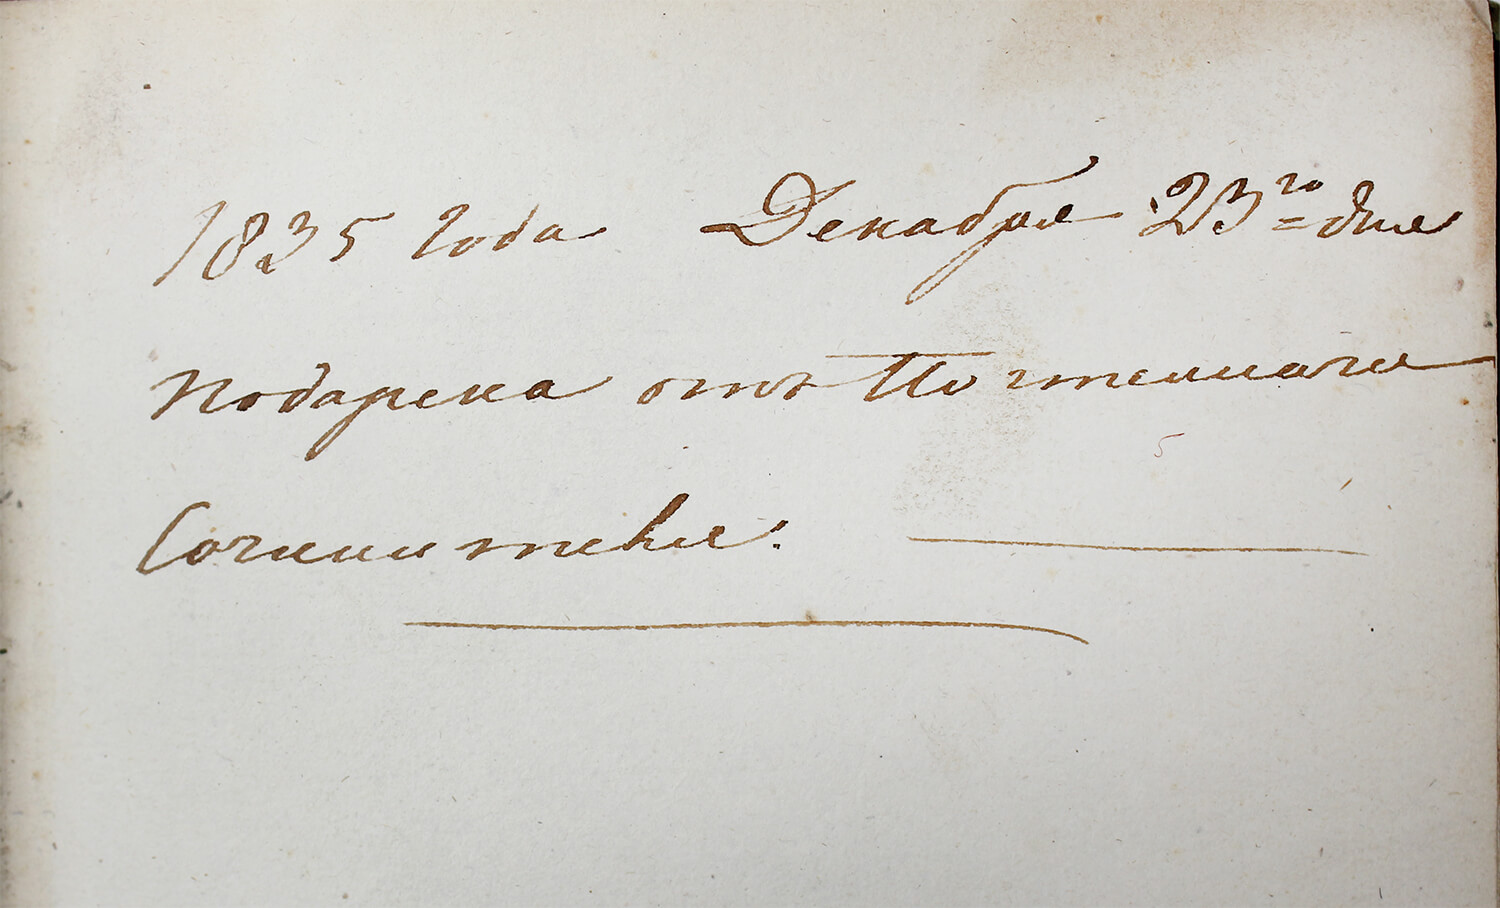 1835 года Декабря 23го дня
Подарена отъ Почтеннаго
Сочинителя.